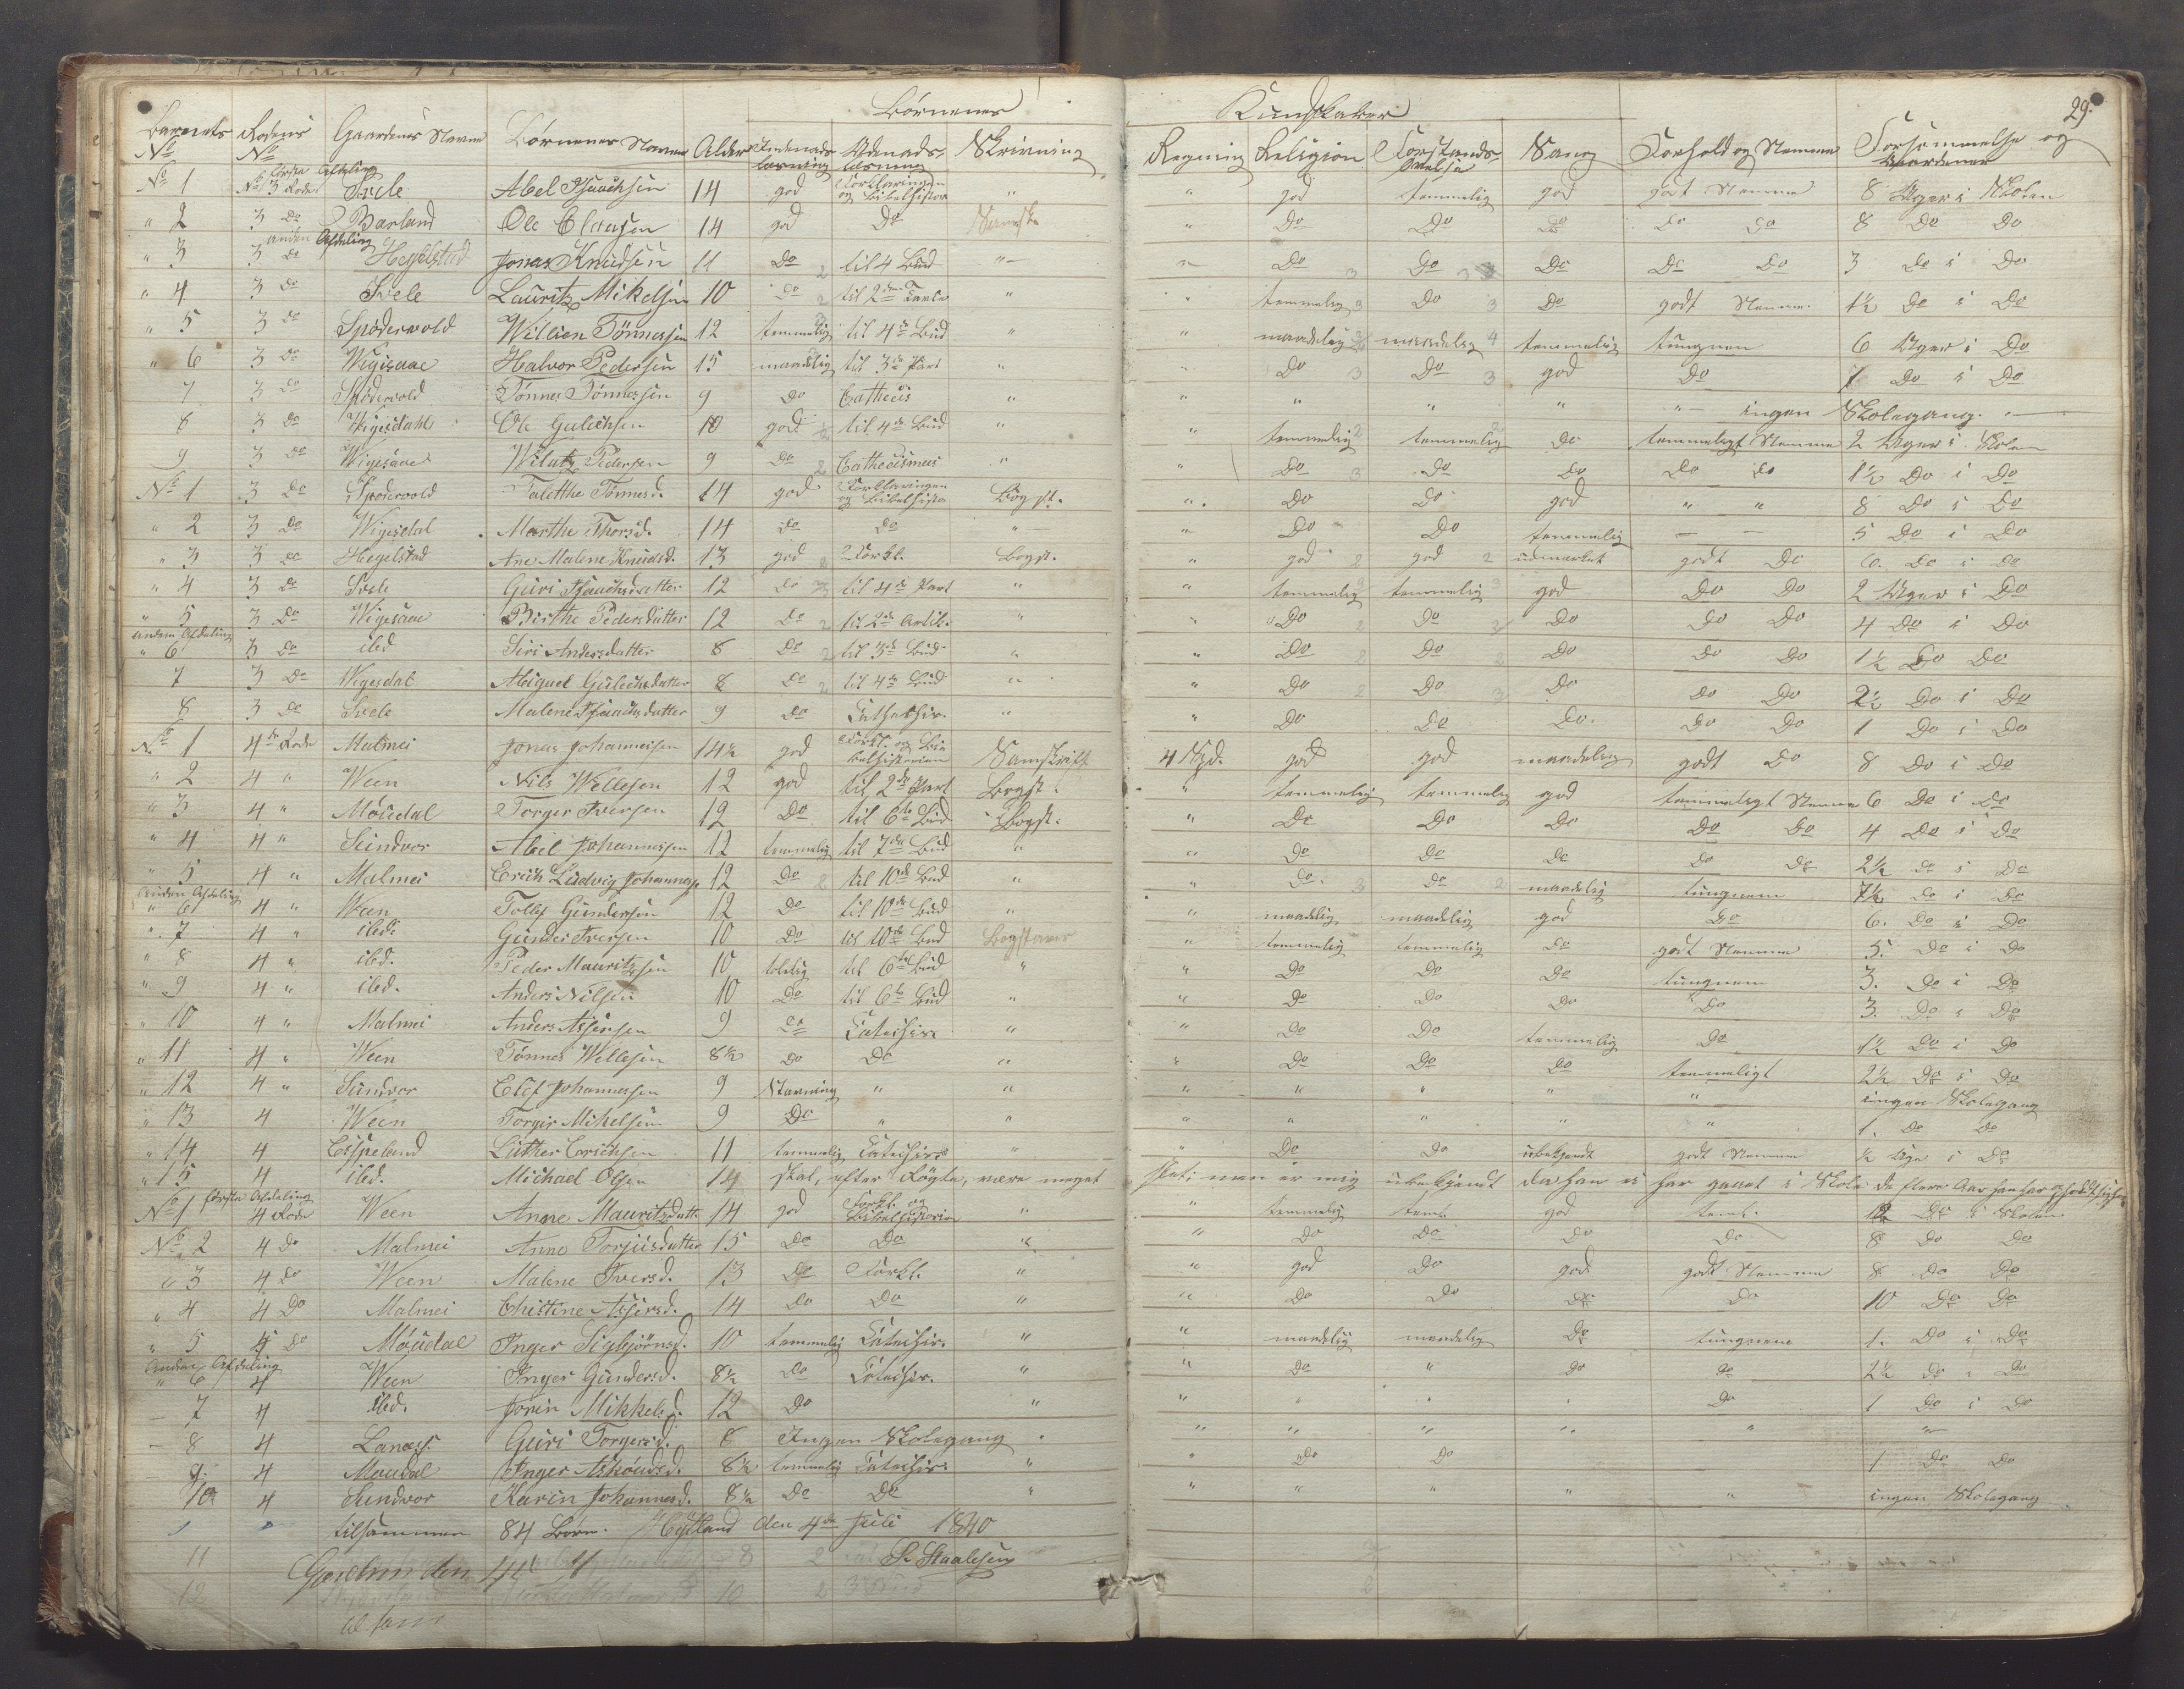 29.
Børnenes Kundskaber
Barnets No Rodens No Gaardenes Navne Børnenes Navne Alder Indenads-læsning Udenads-læsning Skrivning Regning Religion Forstands-øvelse Sang Forhold og Nemme Forsømmelse og
første Afdeling
No 1 No 3 Rode Svele Abel Isaachsen 14 god Forklaringen og Bibelhistor " " god temmelig god godt Nemme 8 Uger i Skolen
" 2 3 Do Barland Ole Clausen 14 god Do " Do Do Do Do Do 8 Do Do
anden Afdeling
" 3 3 Do Hegelstad Jonas Knudsen 11 Do 2 til 4 Bud " " Do 3 Do 3 Do Do Do 3 Do i Do
" 4 3 Do Svele Lauritz Mikelsen 10 Do 2 til 2den " " temmelig 3 Do 3 Do godt Nemme 1½ Do i Do
" 5 3 Do Spødervold Willien Tønnessen 12 temmelig til 4de Bud " " maadelig maadelig 4 temmelig tungnem 6 Uger i Do
" 6 3 Do Wigesaae Halvor Pedersen 15 maadelig til 3die Part " " Do 3 Do 3 god Do 1 Do i Do
7 3 Do Spødervold Tønnes Tønnessen 9 Do Cathecis " " " " " ingen Skolegang
8 3 Do Wigesdahl Ole Gulichsen 10 god til 4de Bud " " temmelig 2 temmelig 2 Do temmeligt Nemme 2 Uger i Skolen
9 3 Do Wigesaae Wilatz Pedersen 9 Do 2 Cathecismus " " Do 3 Do Do Do Do 1½ Do i Do
No 1 3 Do Spødervold Talethe Tønnesd. 14 god Forklaringen og Bibelhisto Bogst. " Do Do god " " 8 Do i Do
" 2 3 Do Wigesdal Marthe Thorsd. 14 Do Do " " Do Do temmelig 5 Do i Do
" 3 3 Do Hegelstad Ane Malene Knudsd. 13 god 2 Forkl. Bogst. " god 2 god 2 udmærket godt Do 6 Do i Do
" 4 3 Do Svele Guri Isaachsdatter 12 Do til 4de Part " " temmelig temmelig 3 god Do Do 2 Uger i Do
" 5 3 Do Wigesaae Birthe Pedersdatter 12 Do 2 til 2de Artik. " " Do 2 Do Do Do Do 4 Do i Do
anden Afdeling
" 6 3 Do ibd Siri Andersdatter 8 Do 2 til 3die Bud " " Do 2 Do 2 Do Do Do 1½ Do Do
7 3 Do Wigesdal Abiguel Gulichsdatter 8 Do 2 til 4de Bud " " Do 2 Do 3 Do Do Do 2½ Do i Do
8 3 Do Svele Malene Isaachsdatter 9 Do Cathechis. " " Do Do Do Do Do 1 Do i Do
No 1 4de Rode Malmei Jonas Johannessen 14½ god Forkl. og Bibelhistorien Samskrift 4 Spd. god god maadelig godt Do 8 Do i Do
" 2 4 " Ween Nils Wellesen 12 god til 2de Part Bogst. " temmelig temmelig god temmeligt Nemme 6 Do i Do
" 3 4 " Moudal Torger Iversen 12 Do til 6te Bud Bogst. " Do Do Do Do Do 4 Do i Do
" 4 4 " Sundvor Abel Johannessen 12 temmelig til 7de Bud " " Do Do Do Do Do 2½ Do i Do
" 5 4 " Malmei Erich Ludvig Johannes. 12 Do 2 til 10de Bud " " Do 3 Do 2 maadelig tungnem 7½ Do i Do
anden Afdeling
" 6 4 " Ween Tollef Gundersen 12 Do til 10de Bud " " maadelig maadelig god Do 6. Do i Do
" 7 4 " ibd. Gunder Iversen 10 Do til 10de Bud Bogstaver " temmelig temmelig Do godt Nemme 5. Do i Do
" 8 4 " ibd. Peder Mauritzsen 10 tolelig til 6te Bud " " Do Do Do tungnem 3. Do i Do
" 9 4 " ibd. Anders Nilsen 10 Do til 6te Bud " " Do Do Do Do 3. Do i Do
" 10 4 " Malmei Anders Assersen 9 Do Catechis. " " Do Do temmelig Do 1½ Do i Do
" 11 4 " Ween Tønnes Wellesen 8½ Do Do " " Do Do Do temmeligt 2½ Do i Do
" 12 4 " Sundvor Elef Johannessen 9 Stavning " " " " " " " ingen Skolegang
" 13 4 Ween Torger Mikelsen 9 Do " " " " " " 1. Do Do
" 14 4 Espeland Luther Erichsen 11 temmelig Catechis. " " Do Do ubekjendt godt Nemme ½ Uge i Do
" 15 4 ibd. Michael Olsen 14 skal, efter Røgte, være meget men er mig ubekjendt da han ei har gaaet i Skole de flere Aar han har opholdt sig her
første Afdeling
No 1 4 Rode Ween Anne Mauritzdatt. 14 god Forkl. og Bibelhistorien " " temmelig tem. god tem. 12 Do i Skolen
No 2 4 Do Malmei Anne Torjusdatter 15 Do Do " " Do Do Do Do 8 Do Do
" 3 4 Do Ween Malene Iversd. 13 Do Forkl. " " god Do god godt Nemme 8 Do Do
" 4 4 Do Malmei Christine Assersd. 14 Do Do " " Do Do Do Do 10 Do Do
" 5 4 Do Moudal Inger Sigbjørnsd. 10 temmelig Catechis. " " maadelig maadelig Do tungnem 1. Do i Do
anden Afdeling
" 6 4 Ween Inger Gundersd. 8½ Do Catechis. " " Do " Do Do 2½ Do i Do
7 4 ibd. Jorin Mikkelsd. 12 Do " " Do 1 Do i Do
8 4 Lanæss Guri Torgersd. 8 Ingen Skolegang " " " " " "
9. 4 Moudal Inger Askoudsd. 8½ temmelig Catechis. " " Do Do 1 Do Do
10 4 Sundvor Karin Johannesd. 8½ Do Do " " " " " " ingen Skolegang
tilsammen 84 Børn. Hegland den 4de Juli 1840
11 8 2 S. Staalesen
12 10 2 3 Bud